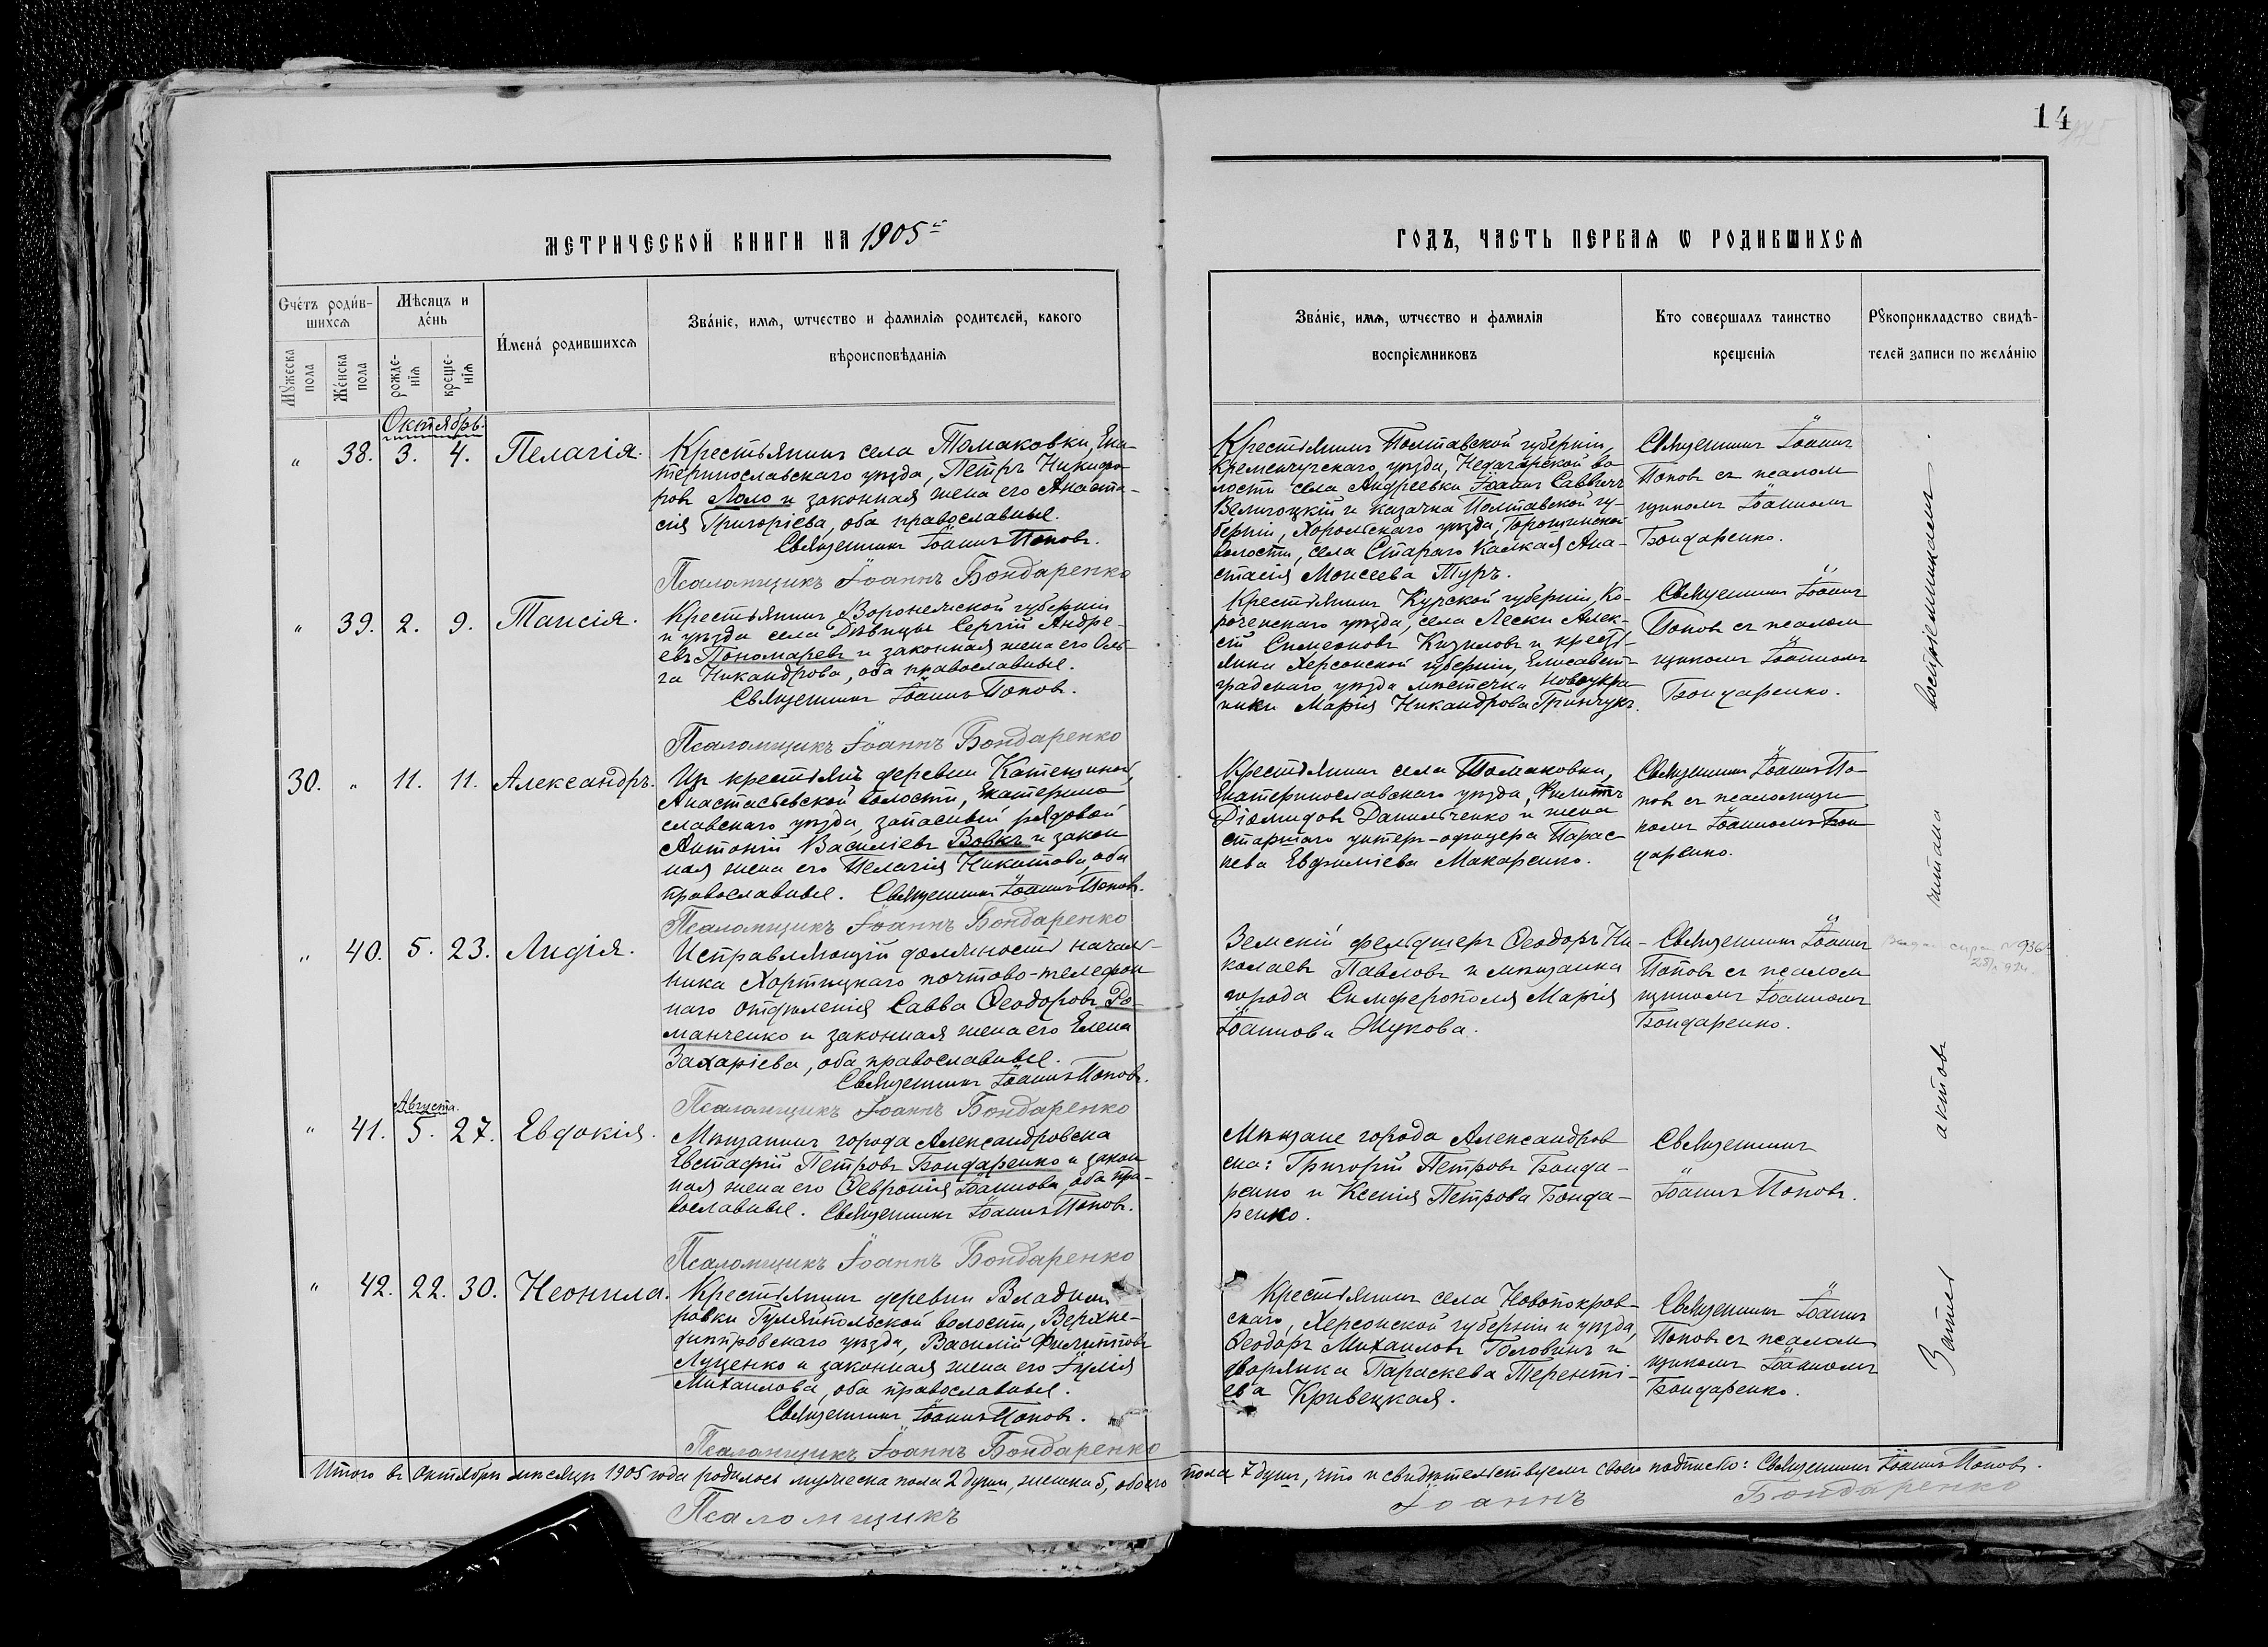 14
МЕТРИЧЕСКОЙ КНИГИ НА 1905й
ГОДЪ, ЧАСТЬ ПЕРВАѦ Ѡ РОДИВШИХСѦ
Счётъ родив-
шихсѧ
Мужеска пола
Женска пола
Мѣсяцъ и
день
рожде-
нія
креще-
нія
Имена родившихсѧ
Званіе, имѧ, ѡтчество и фамиліѧ родителей, какого
вѣроисповѣданіѧ
Званіе, имѧ, ѡтчество и фамиліѧ
воспріемниковъ
Кто совершалъ таинство
крещеніѧ
Рукоприкладство свидѣ-
телей записи по желанію
Октябрь.
" 38. 3. 4. Пелагія.
Крестьянинъ села Томаковки, Ека-
теринославскаго уѣзда, Петръ Никифо-
ровъ Лоло и законная жена его Анаста-
сія Григоріева, оба православные.
Священникъ Іоаннъ Поповъ.
Псаломщикъ Іоаннъ Бондаренко
Крестьянинъ Полтавской губерніи,
Кременчугскаго уѣзда, во-
лости села Андреевки Іоаннъ Саввичъ
Величоцкій и казачка Полтавской гу-
берніи, Хорольскаго уѣзда, Горошинской
волости, села Стараго Ана-
стасія Моисеева Туръ.
Священникъ Іоаннъ
Поповъ съ псалом
щикомъ Іоанномъ
Бондаренко.
" 39. 2. 9. Таисія.
Крестьянинъ Воронежской губерніи
и уѣзда села Дѣвицы Сергій Андре-
евъ Пономаревъ и законная жена его Оль-
га Никандрова, оба православные.
Священникъ Іоаннъ Поповъ.
Псаломщикъ Іоаннъ Бондаренко
Крестьянинъ Курской губерніи, Ко-
роченскаго уѣзда, села Лески Алек-
сій Симеоновъ Кизиловъ и кресть-
янка Херсонской губерніи, Елисавет-
градскаго уѣзда мѣстечка Новоукра
инки Марія Никандрова Гринчукъ.
Священникъ Іоаннъ
Поповъ съ псалом
щикомъ Іоанномъ
Бондаренко.
30. " 11. 11. Александръ.
Изъ крестьянъ деревни
Анастасьевской волости, Екатерино
славскаго уѣзда, запасный рядовой
Антоній Василіевъ Вовкъ и закон
ная жена его Пелагія Никитова, оба
православные. Священникъ Іоаннъ Поповъ.
Псаломщикъ Іоаннъ Бондаренко
Крестьянинъ села Томаковки,
Екатеринославскаго уѣзда, Филиппъ
Діомидовъ Данильченко и жена
старшаго унтеръ-офицера Парас-
кева Евфиміева Макаренко.
Священникъ Іоаннъ По-
повъ съ псаломщи
комъ Іоанномъ Бон
даренко.
" 40. 5. 23. Лидія.
Исправляющій должность началь-
ника Хортицкаго почтово-телефон
наго отдѣленія Савва Ѳеодоровъ Ро-
манченко и законная жена его Елена
Захаріева, оба православные.
Священникъ Іоаннъ Поповъ.
Псаломщикъ Іоаннъ Бондаренко
Земскій фельдшеръ Ѳеодоръ Ни-
колаевъ Павловъ и мѣщанка
города Симферополя Марія
Іоаннова Жукова.
Священникъ Іоаннъ
Поповъ съ псалом
щикомъ Іоанномъ
Бондаренко.
Августа.
" 41. 5. 27. Евдокія.
Мѣщанинъ города Александровска
Евстафій Петровъ Бондаренко и закон
ная жена его Ѳевронія Іоаннова, оба пра-
вославные. Священникъ Іоаннъ Поповъ.
Псаломщикъ Іоаннъ Бондаренко
Мѣщане города Александров
ска: Григорій Петровъ Бонда-
ренко и Ксенія Петрова Бонда-
ренко.
Священникъ
Іоаннъ Поповъ.
" 42. 22. 30. Неонила.
Крестьянинъ деревни Владими
ровки Гуляйпольской волости, Верхне-
днѣпровскаго уѣзда, Василій Филипповъ
Луценко и законная жена его Іулія
Михаилова, оба православные.
Священникъ Іоаннъ Поповъ.
Псаломщикъ Іоаннъ Бондаренко
Крестьянинъ села Новопокров-
скаго, Херсонской губерніи и уѣзда,
Ѳеодоръ Михаиловъ Головинъ и
дворянка Параскева Теренті-
ева Кривецкая.
Священникъ Іоаннъ
Поповъ съ псалом
щикомъ Іоанномъ
Бондаренко.
Запись актовъ читана воспріемникамъ.
Итого въ октябрѣ мѣсяцѣ 1905 года родилось мужеска пола 2 души, женска 5, обоего пола 7 душъ, что и свидѣтельствуемъ своею подписью: Священникъ Іоаннъ Поповъ.
Псаломщикъ Іоаннъ Бондаренко